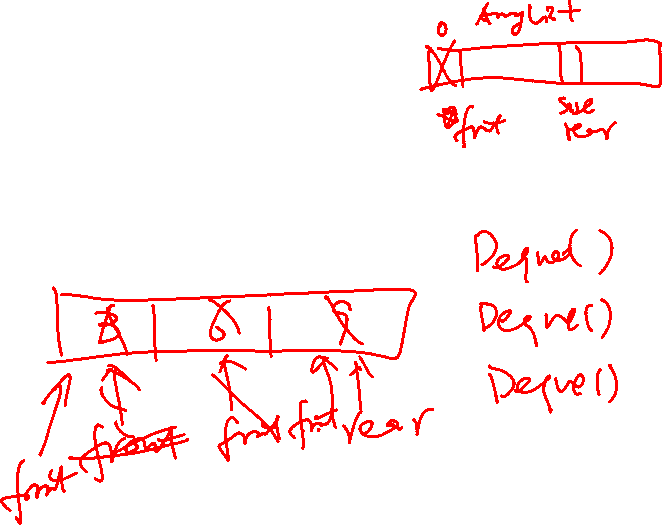 0 ArrayList
frnt size
rear
Deque()
Deque()
Deque()
B 6
front front front frnt rear